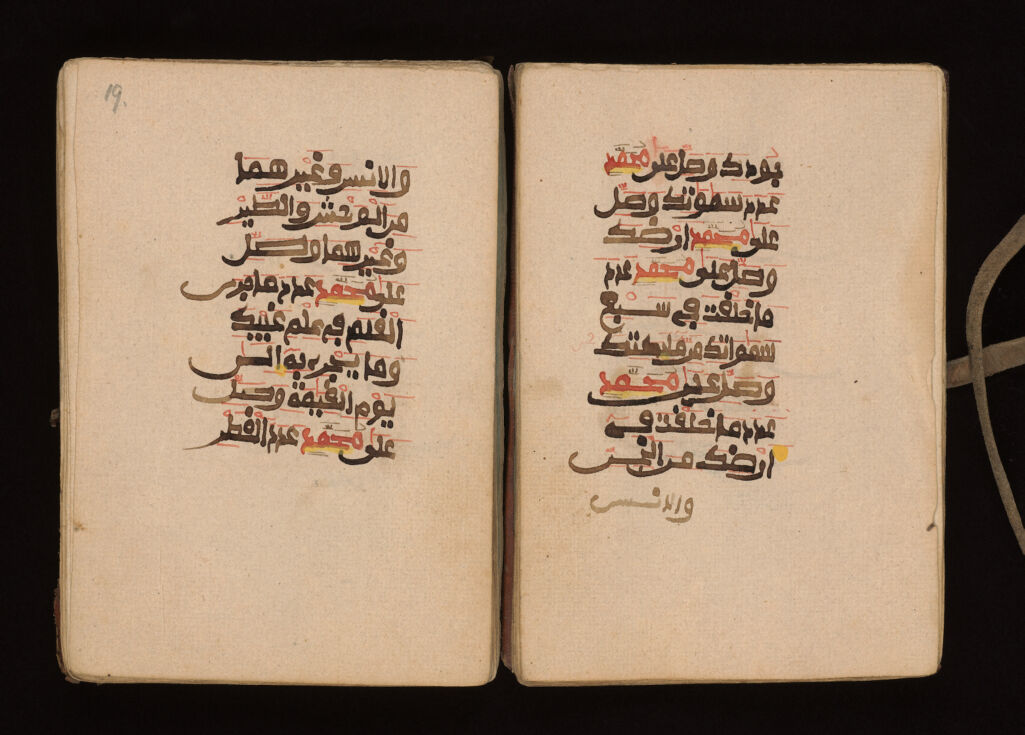 بودك وصل على محمد
عدد سموتك وصل
على محمد ارضك
وصل على محمد عدد
ما خلقت في سبع
سمواتك من مليكتك
وصل على محمد
عدد ما خلقت في
ارضك من الجن
والانس
19.
والانس وغيرهما
من الوحش والطير
وغيرهما وصل
على محمد عدد ما جرى
القلم في علم غيبك
وما يجرى به الى
يوم القيمة وصل
على محمد عدد القطر